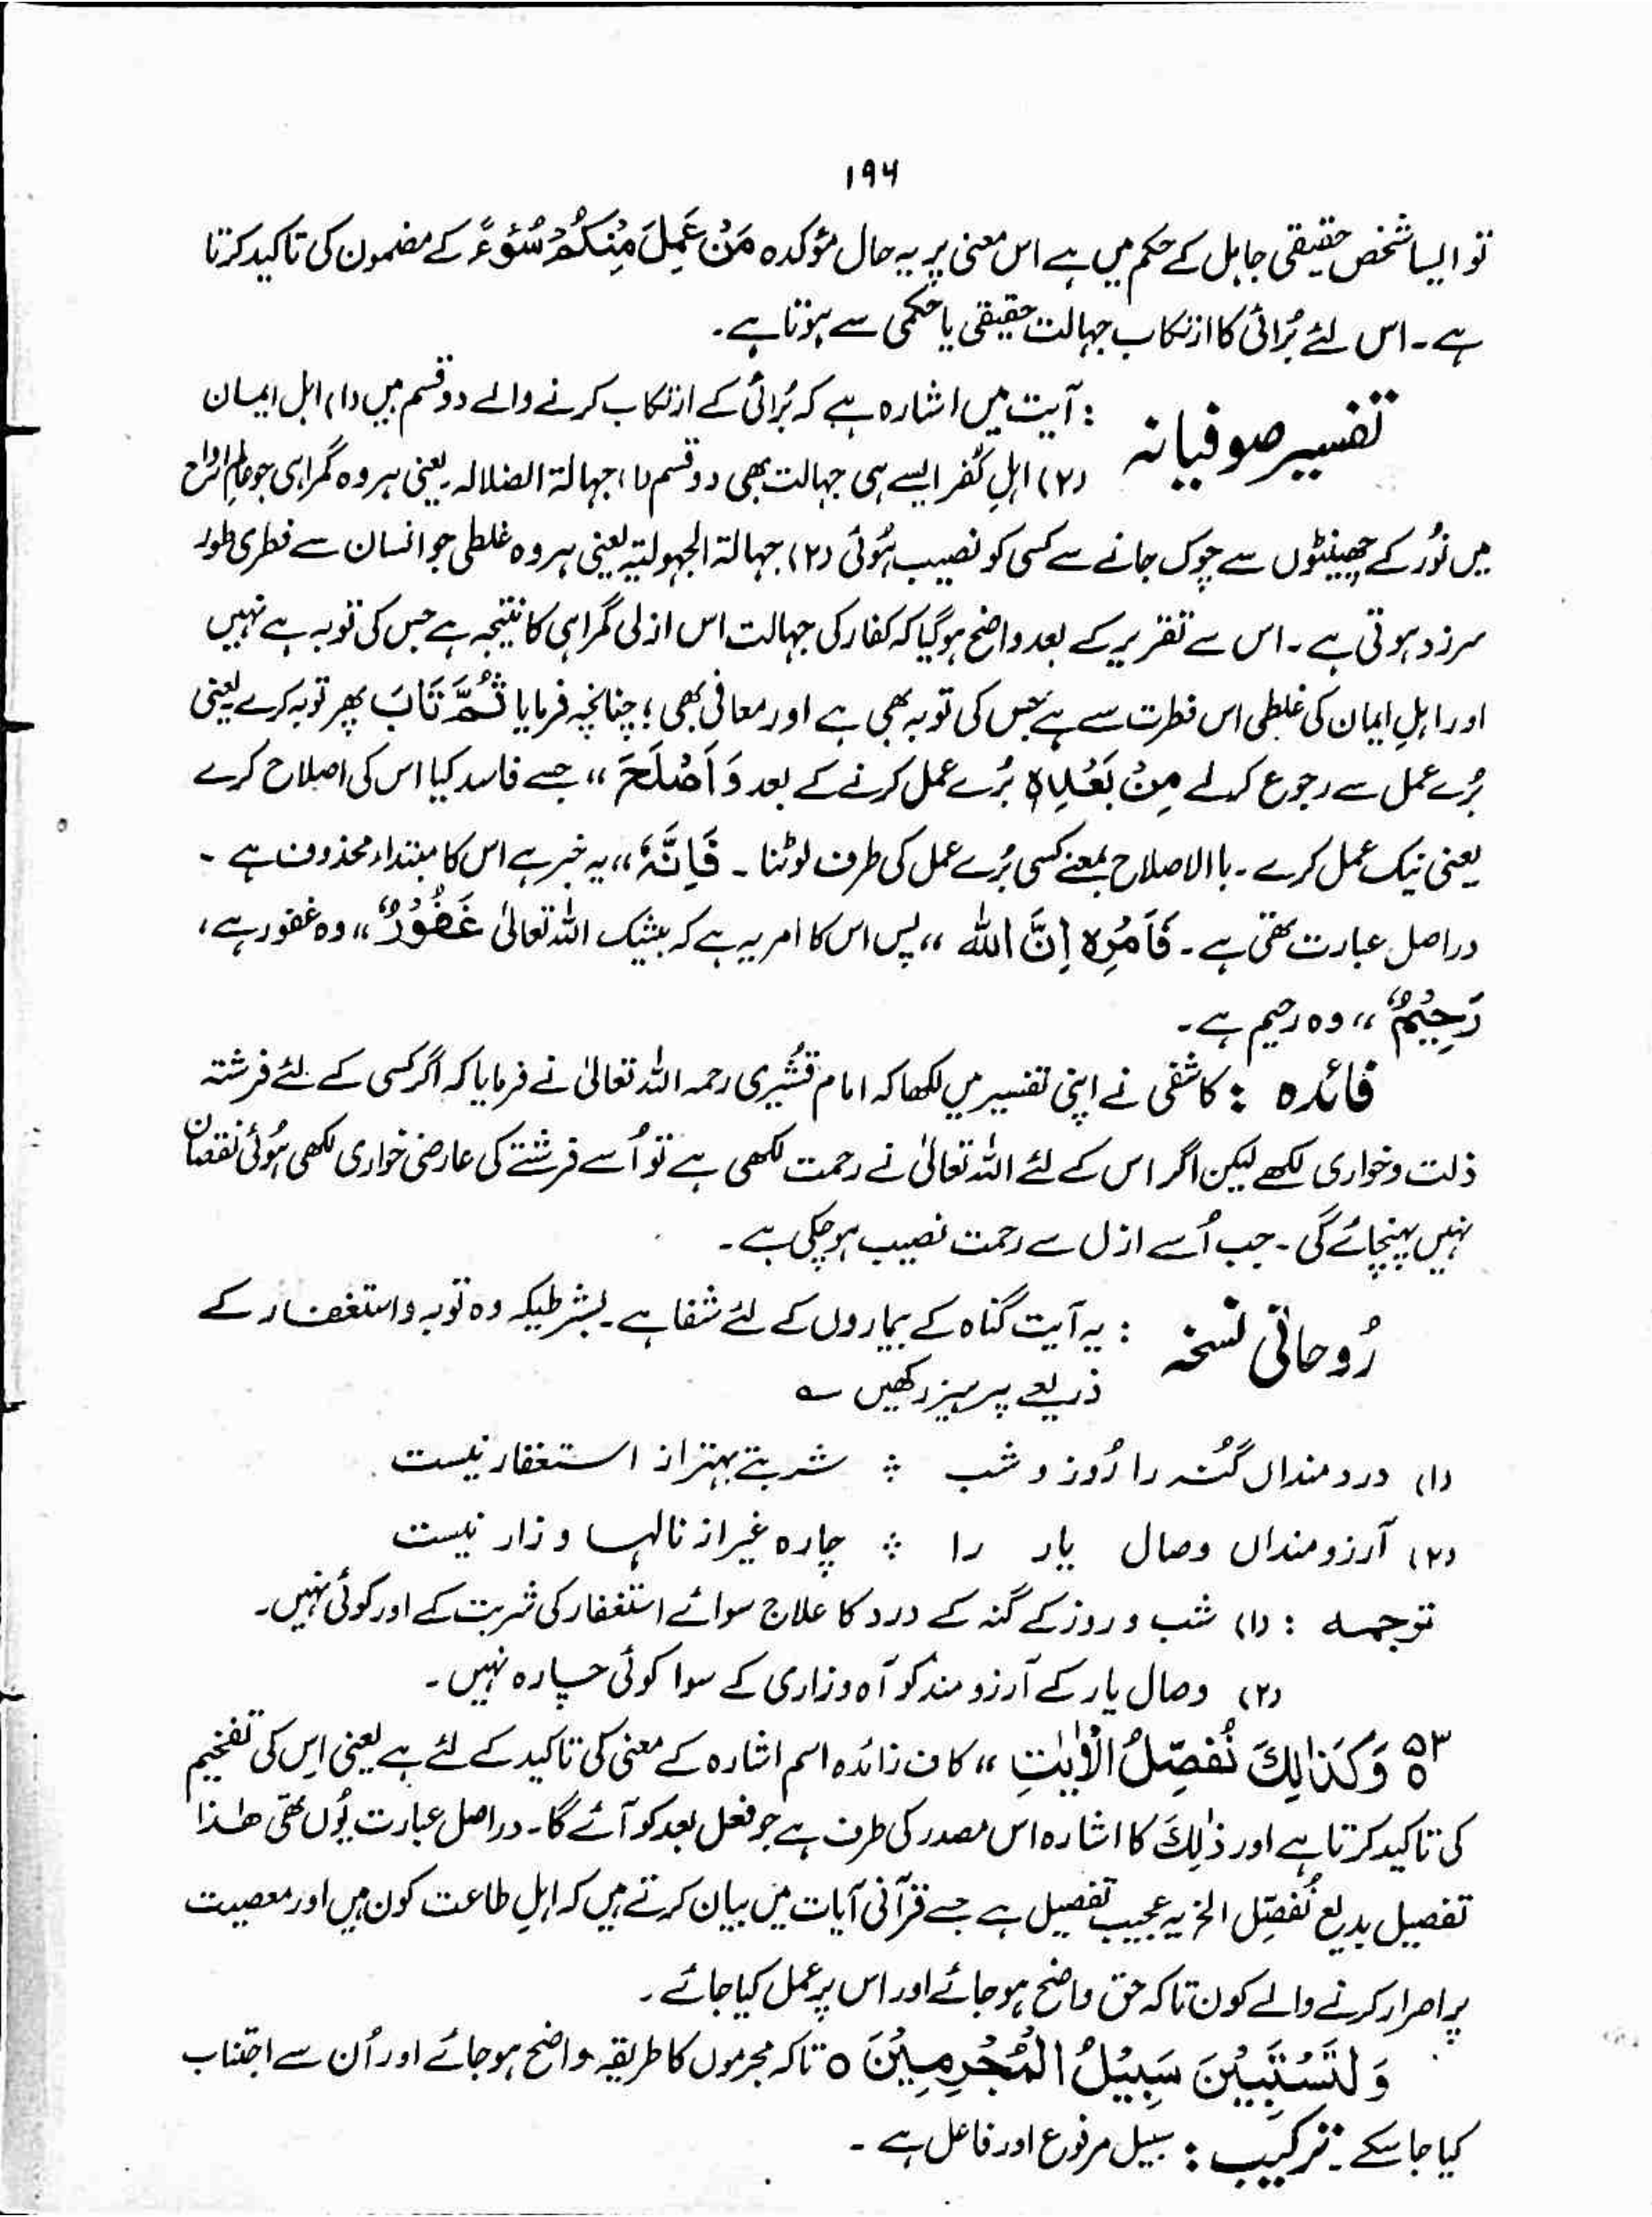 ۱۹۶
تو ایسا شخص حقیقی جاہل کے حکم میں ہے اس معنی پر یہ حال مؤکدہ مَنْ عَمِلَ مِنْكُمْ سُوْءً کے مضمون کی تاکید کرتا
ہے۔ اس لئے بُرائی کا ارتکاب جہالت حقیقی یا حکمی سے ہوتا ہے۔
تفسیر صوفیانہ : آیت میں اشارہ ہے کہ بُرائی کے ارتکاب کرنے والے دو قسم ہیں (۱) اہل ایمان
(۲) اہلِ کُفر ایسے ہی جہالت بھی دو قسم (۱) جہالۃ الضلالہ یعنی ہر وہ گمراہی جو عالم ارواح
میں نُور کے چھینٹوں سے چوک جانے سے کسی کو نصیب ہُوئی (۲) جہالۃ الجہولیۃ یعنی ہر وہ غلطی جو انسان سے فطری طور
سرزد ہوتی ہے۔ اس سے تقریر کے بعد واضح ہوگیا کہ کفار کی جہالت اس ازلی گمراہی کا نتیجہ ہے جس کی توبہ ہے نہیں
اور اہلِ ایمان کی غلطی اس فطرت سے ہے جس کی توبہ بھی ہے اور معافی بھی ؛ چنانچہ فرمایا ثُمَّ تَابَ پھر توبہ کرے یعنی
بُرے عمل سے رجوع کرلے مِنْ بَعْدِهٖ بُرے عمل کرنے کے بعد وَاَصْلَحَ ،، جسے فاسد کیا اس کی اصلاح کرے
یعنی نیک عمل کرے۔ باالاصلاح بمعنے کسی بُرے عمل کی طرف لوٹنا ۔ فَاِنَّہٗ ،، یہ خبر ہے اس کا مبتداء محذوف ہے ۔
دراصل عبارت تھی ہے۔ فَاَمْرِہٖ اِنَّ اللہ ،، پس اس کا امر یہ ہے کہ بیشک اللہ تعالیٰ غَفُوْرٌ ،، وہ غفور ہے،
رَحِيْمٌ ،، وہ رحیم ہے۔
فائدہ : کاشفی نے اپنی تفسیر میں لکھا کہ امام قشُیری رحمہ اللہ تعالیٰ نے فرمایا کہ اگر کسی کے لئے فرشتہ
ذلت و خواری لکھے لیکن اگر اس کے لئے اللہ تعالیٰ نے رحمت لکھی ہے تو اُسے فرشتے کی عارضی خواری لکھی ہُوئی نقصان
نہیں پہنچائے گی۔ جب اُسے ازل سے رحمت نصیب ہوچکی ہے۔
رُوحانی نسخہ : یہ آیت گناہ کے بیماروں کے لئے شفا ہے۔ بشرطیکہ وہ توبہ و استغفار کے
ذریعے پرہیز رکھیں ؎
(۱) دردمنداں گنُہ را رُوز و شب ؞ شربتے بہتر از استغفار نیست
(۲) آرزومنداں وصال یار را ؞ چارہ غیر از نالہا و زار نیست
ترجمہ : (۱) شب و روز کے گنہ کے درد کا علاج سوائے استغفار کی شربت کے اور کوئی نہیں۔
(۲) وصال یار کے آرزومند کو آہ وزاری کے سوا کوئی چارہ نہیں۔
۵۳ وَكَذٰلِكَ نُفَصِّلُ الْاٰيٰتِ ،، کاف زائدہ اسم اشارہ کے معنی کی تاکید کے لئے ہے یعنی اِس کی تفخیم
کی تاکید کرتا ہے اور ذٰلِكَ کا اشارہ اس مصدر کی طرف ہے جو فعل بعد کو آئے گا۔ دراصل عبارت یُوں تھی ھٰذا
تفصیل بدیع نُفصِّل الخ یہ عجیب تفصیل ہے جسے قرآنی آیات میں بیان کرتے ہیں کہ اہلِ طاعت کون ہیں اور معصیت
پر اصرار کرنے والے کون تاکہ حق واضح ہوجائے اور اس پر عمل کیا جائے۔
وَلِتَسْتَبِيْنَ سَبِيْلُ الْمُجْرِمِيْنَ ٥ تاکہ مجرموں کا طریقہ واضح ہوجائے اور اُن سے اجتناب
کیا جاسکے۔ ترکیب : سبیل مرفوع اور فاعل ہے ۔